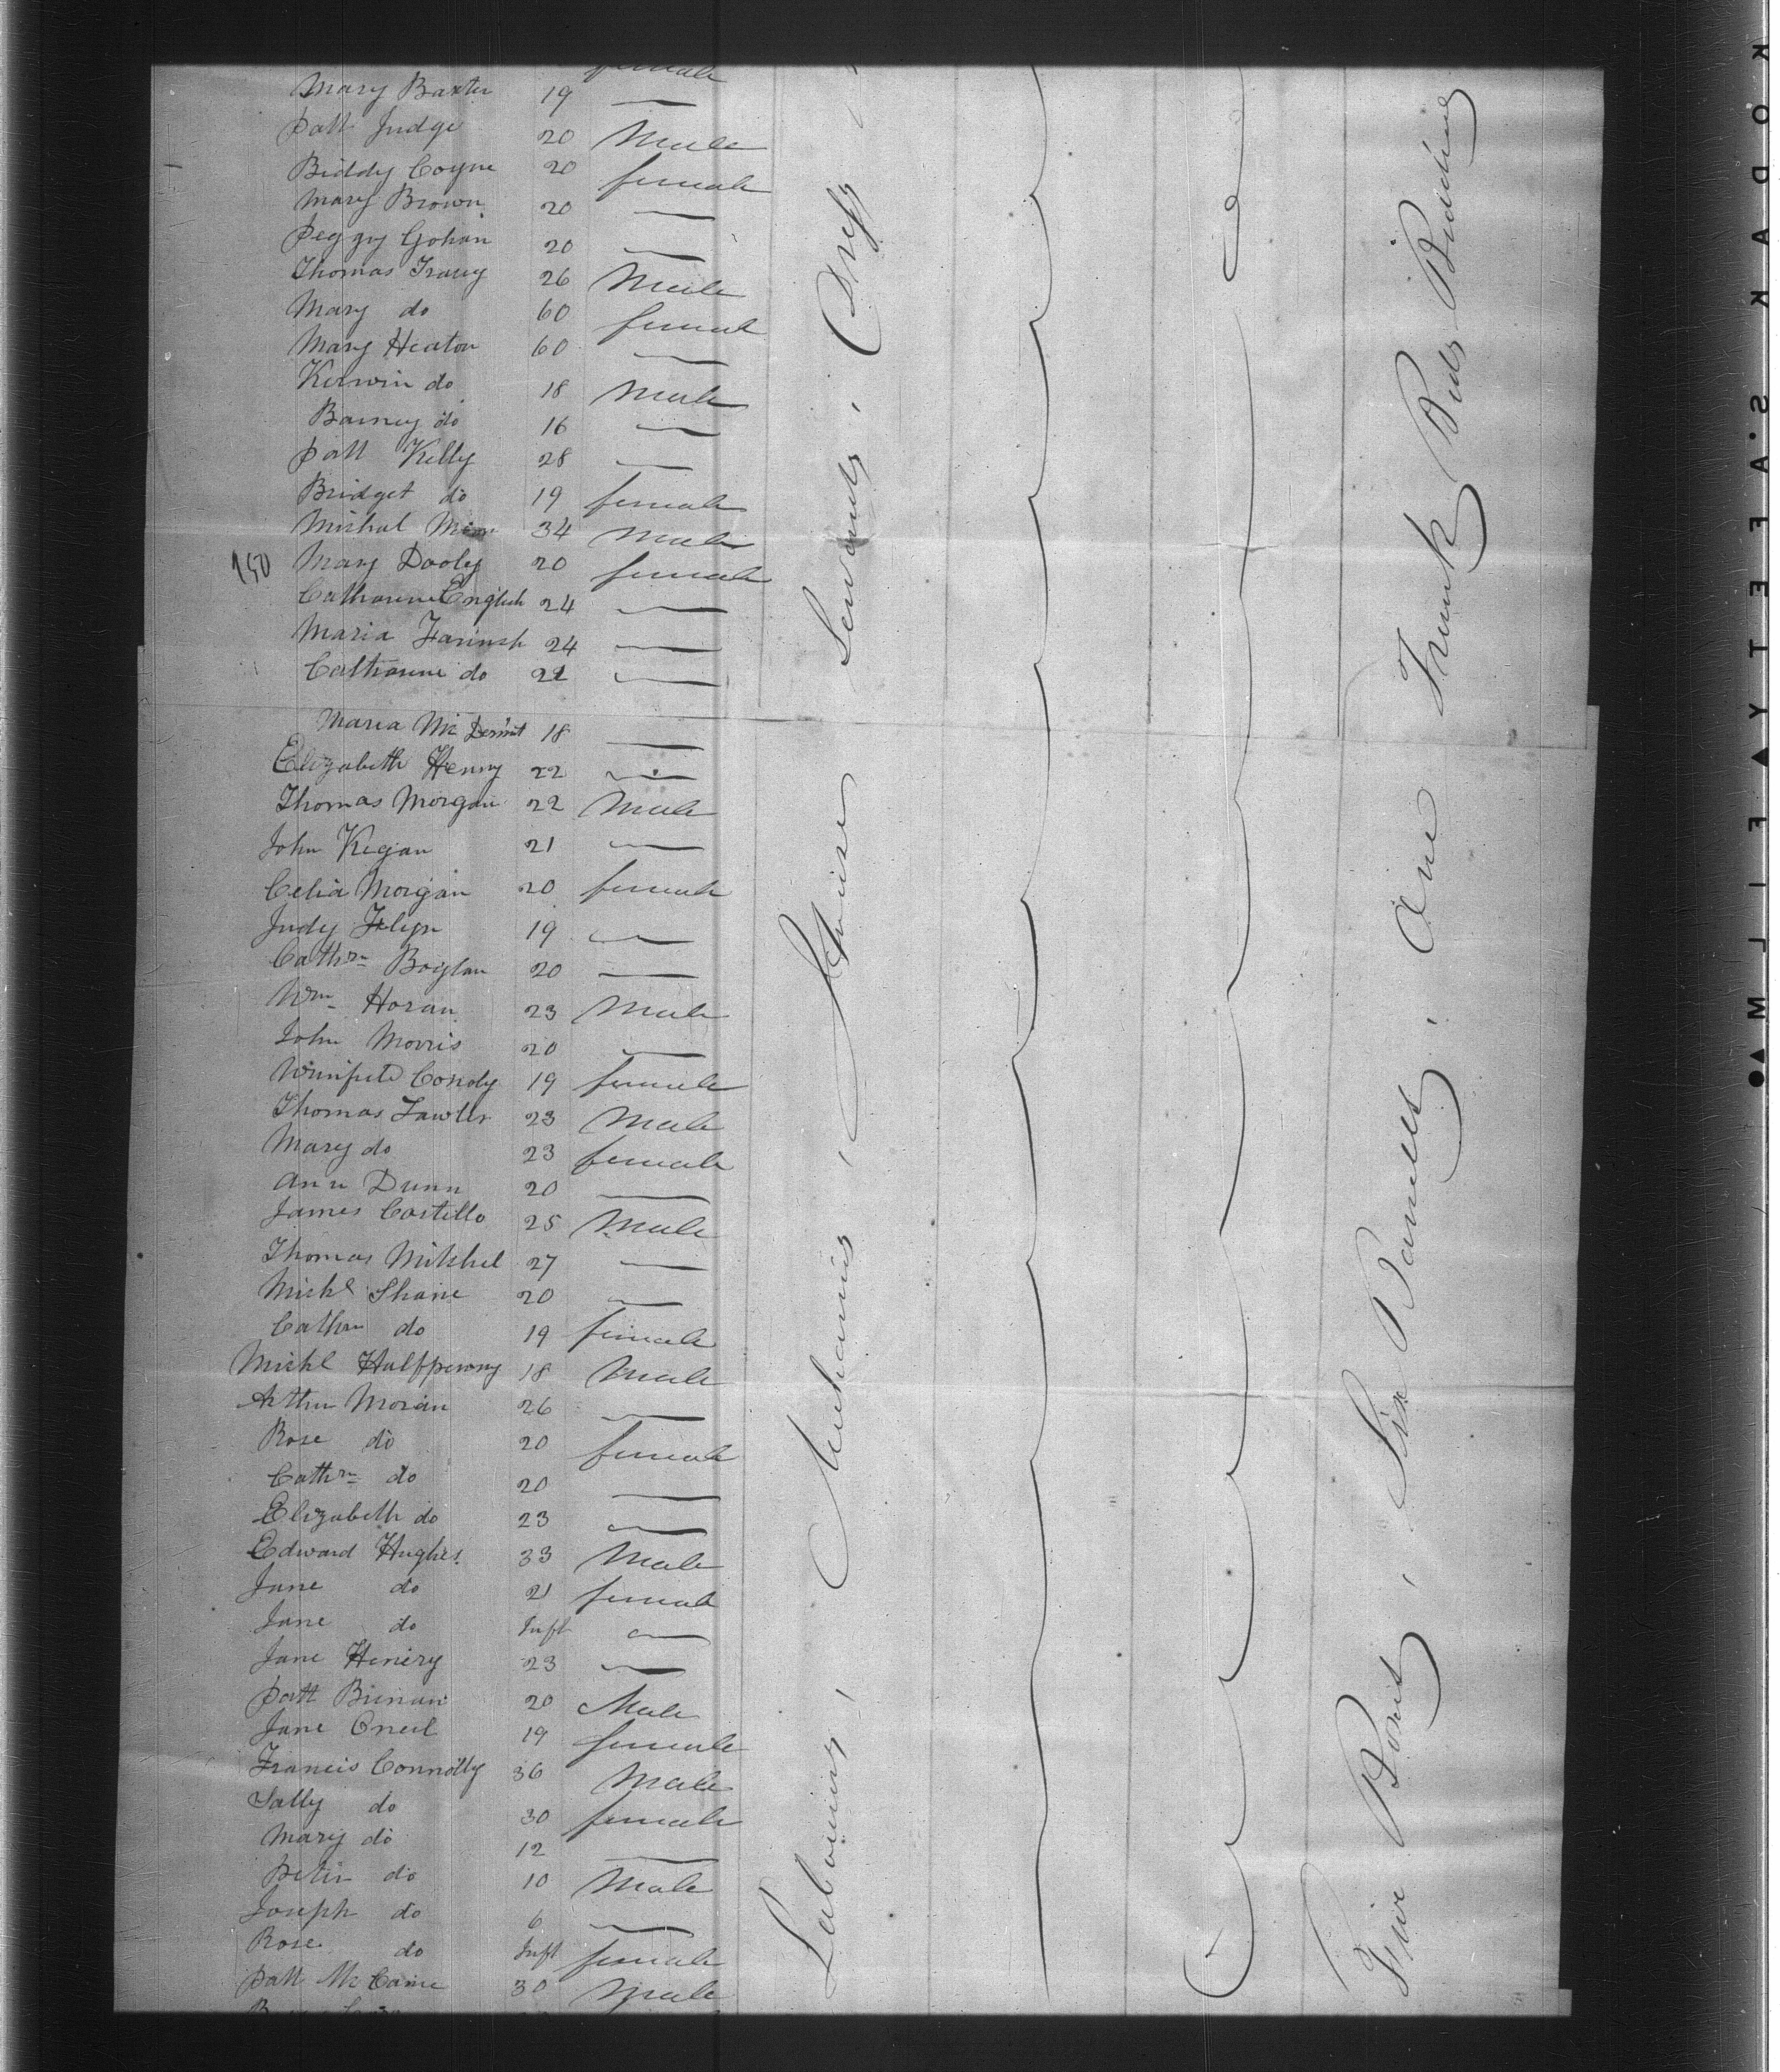 female
Mary Baxter 19 —
Patt Judge 20 Male
Biddy Coyne 20 female
Mary Brown 20 —
Peggy Gohan 20 —
Thomas Tracey 26 Male
Mary do 60 female
Mary Heaton 60 —
Kerwin do 18 Male
Barney do 16 —
Patt Kelly 28 —
Bridget do 19 female
Michal 34 Male
150 Mary Dooly 20 female
Catharine English 24 —
Maria 24 —
Catharine do 22 —
Maria Mc Dermt 18 —
Elizabeth Henry 22 —
Thomas Morgan 22 Male
John Kegan 21 —
Celia Morgan 20 female
Judy Flyn 19 —
Cathrn Boylan 20 —
Wm Horan 23 Male
John Morris 20 —
Winifred Condy 19 female
Thomas Lawler 23 Male
Mary do 23 female
Ann Dunn 20 —
James Costillo 25 Male
Thomas Mitchel 27 —
Michl Shane 20 —
Cathrn do 19 female
Michl Halfpenny 18 Male
Arthur Moran 26 —
Rose do 20 female
Cathrn do 20 —
Elizabeth do 23 —
Edward Hughes 33 Male
Jane do 21 female
Jane do Inft —
Jane Henery 23 —
Patt Brinan 20 Male
Jane Oneil 19 female
Francis Connolly 36 Male
Sally do 30 female
Mary do 12 —
Peter do 10 Male
Joseph do 6 —
Rose do Inft female
Patt Mc Cann 30 Male
Labourers, Mechanics, Servants,
Five Boxes, Six Barrells, One Trunk Beds Bedding
KODAK S.AFETY FILM